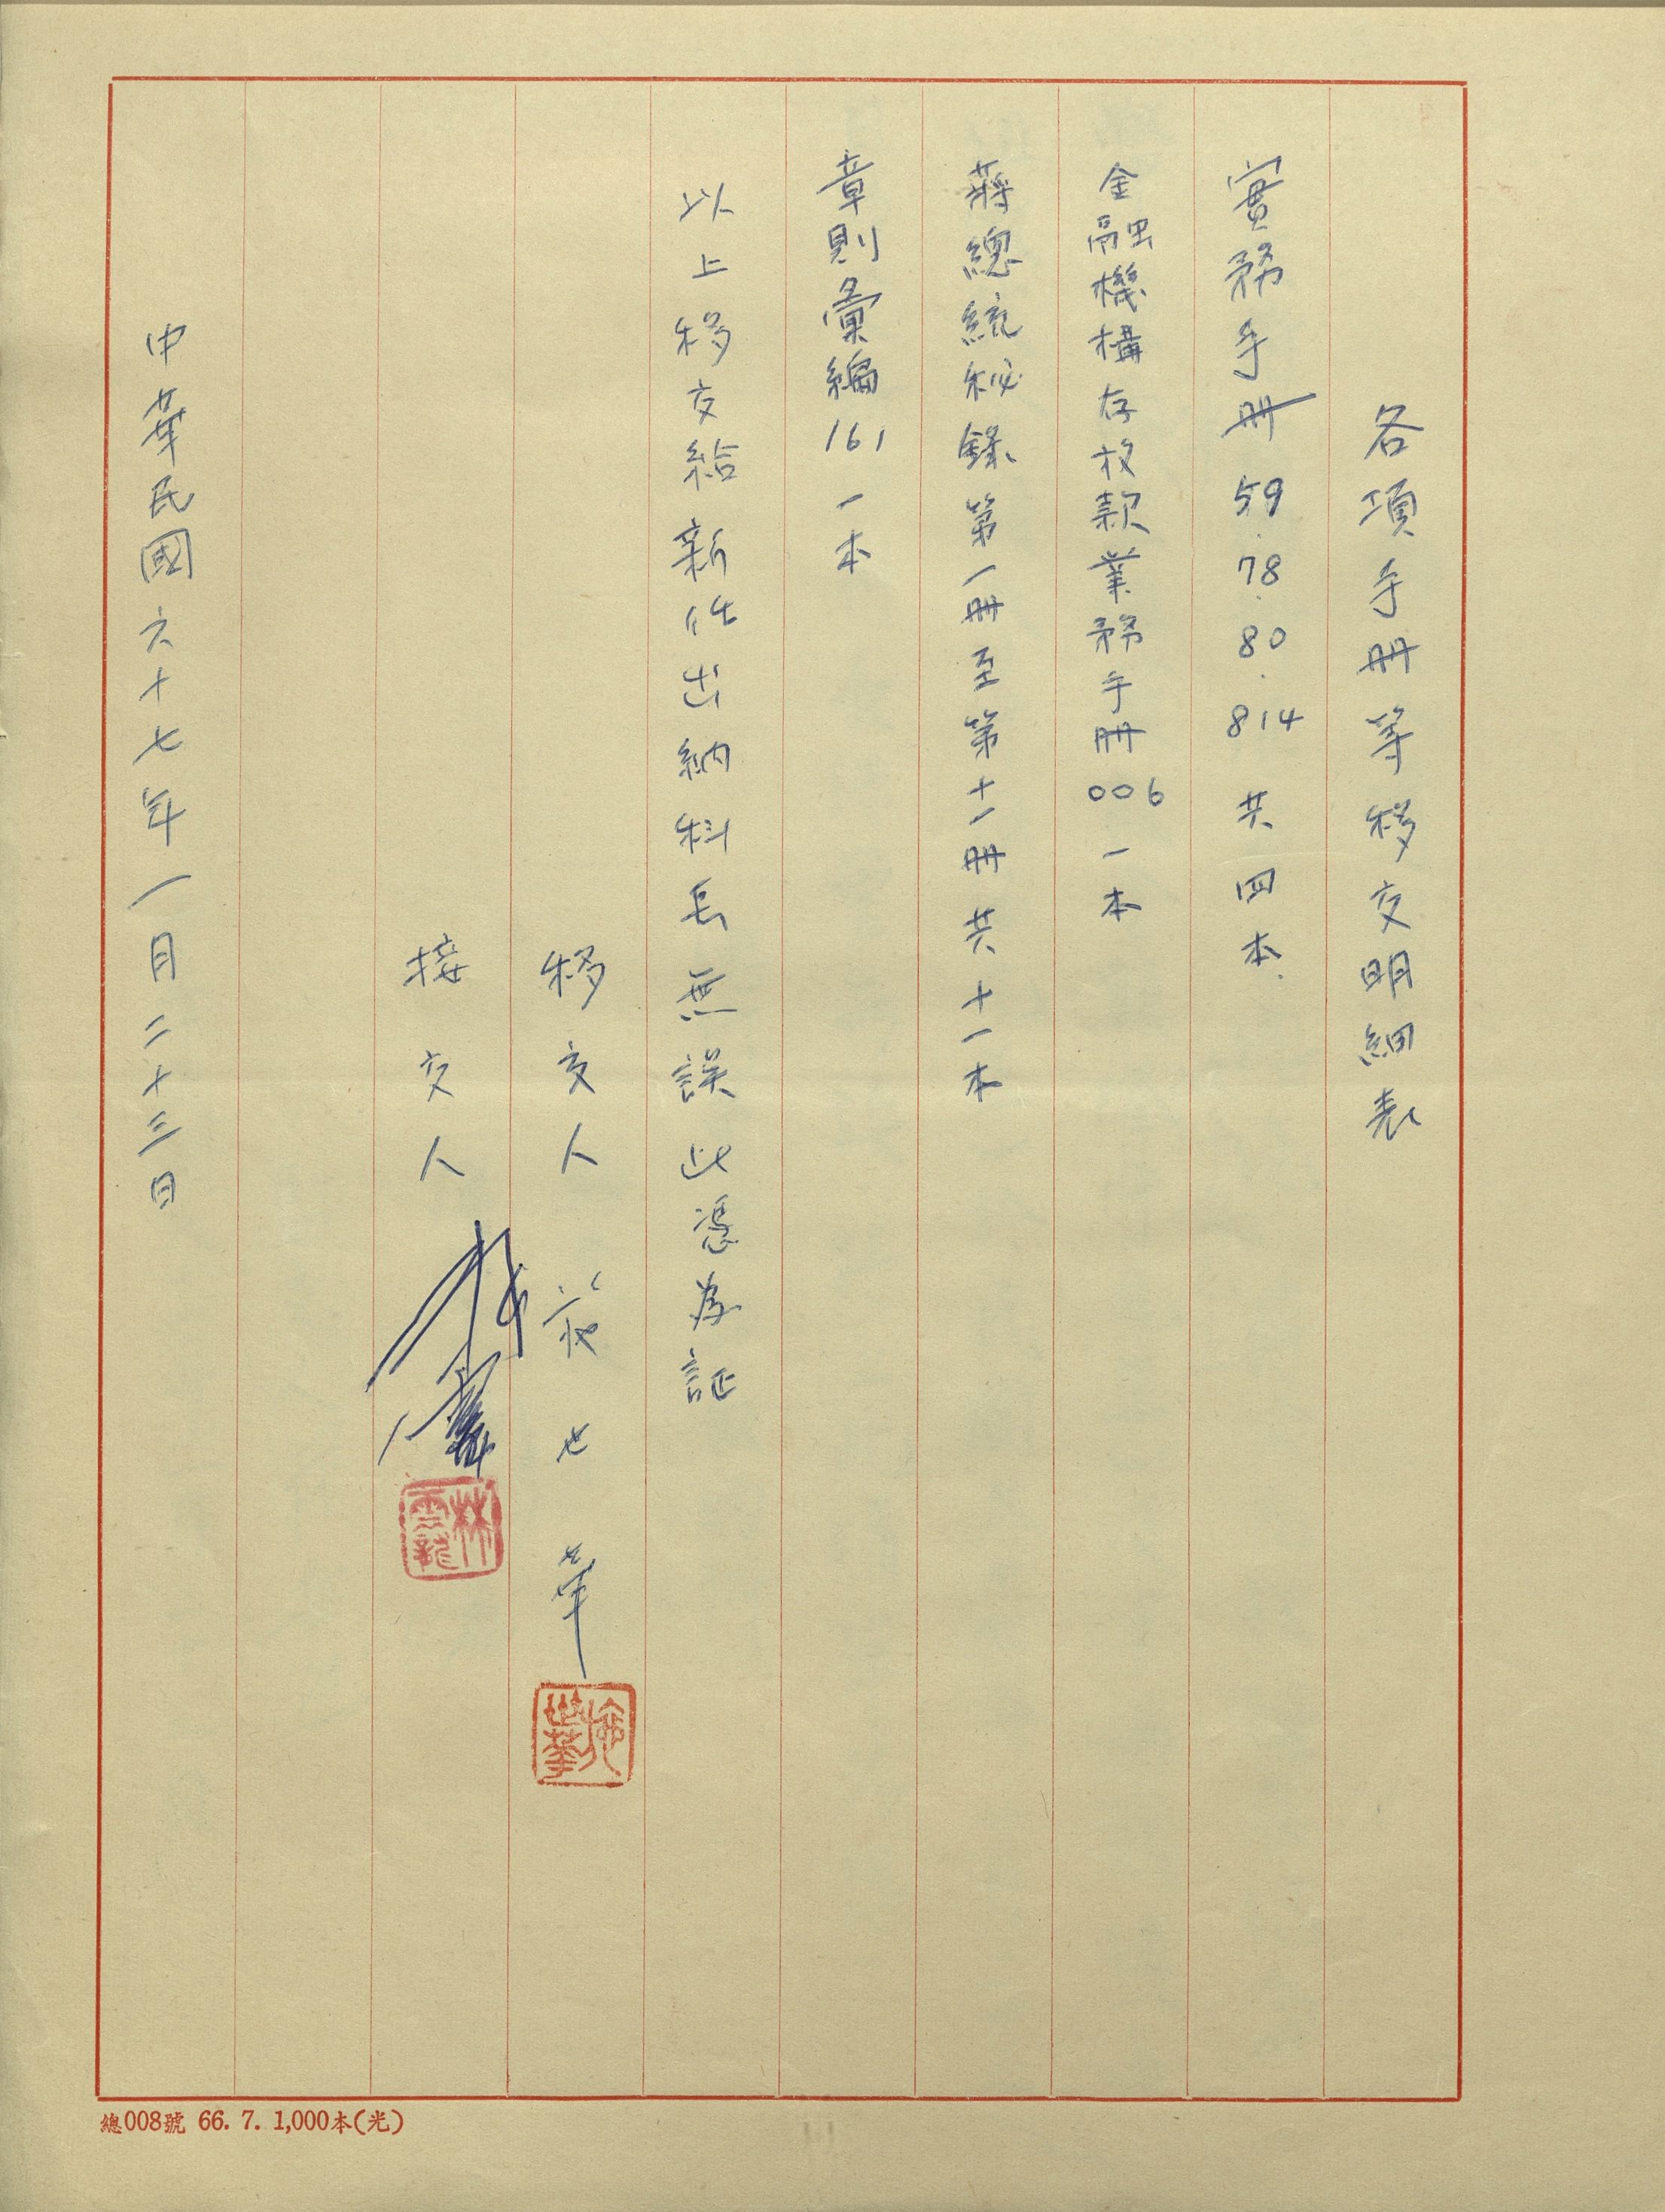 各項手冊等移交明細表
實務手冊 59.78.80.814 共四本.
金融機構存放款業務手冊 006 一本
蔣總統秘錄第一冊至第十一冊共十一本
章則彙編 161 一本
以上移交給新任出納科長無誤此憑為証
移交人 施世華
施世華
接交人
林雲龍
中華民國六十七年一月二十三日
總008號 66. 7. 1,000本(光)